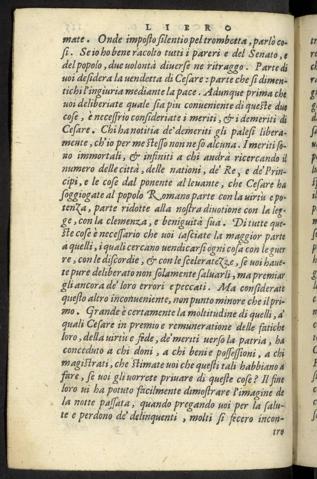 LIBRO
mate. Onde imposto silentio pel trombetta, parlò co-
si. Se io ho bene racolto tutti i pareri e del Senato, e
del popolo, due volontà diverse ne ritraggo. Parte di
voi desidera la vendetta di Cesare: parte che si dimen-
tichi l'ingiuria mediante la pace. Adunque prima che
voi deliberiate quale sia piu conveniente di queste due
cose, è necessrio consideriate i meriti, & i demeriti di
Cesare. Chi ha notitia de' demeriti gli palesi libera-
mente, ch'io per me stesso non ne so alcuno. I meriti so-
no immortali, & infiniti a chi andrà ricercando il
numero delle città, delle nationi, de' Re, e de' Prin-
cipi, e le cose dal ponente al levante, che Cesare ha
soggiogate al popolo Romano parte con la virtu e po-
tenza, parte ridotte alla nostra divotione con la leg-
ge, con la clemenza, e benignità sua. Di tutte que-
ste cose è necessario che voi lasciate la maggior parte
a quelli, i quali cercano vendicarsi ogni cosa con le guer
re, con le discordie, & con le sceleratezze, se voi have-
te pure deliberato non solamente salvarli, ma premiar
gli ancora de' loro errori e peccati. Ma considerate
questo altro inconveniente, non punto minore che il pri-
mo. Grande è certamente la moltitudine di quelli, a'
quali Cesare in premio e remuneratione delle fatiche
loro, della virtu e fede, de' meriti verso la patria, ha
conceduto a chi doni, a chi beni e possessioni, a chi
magistrati, che stimate voi che questi tali habbiano a
fare, se voi gli vorrete privare di queste cose? Il fine
loro vi ha potuto facilmente dimostrare l'imagine de
la notte passata, quando pregando voi per la salu-
te e perdono de' delinquenti, molti si fecero incon-
tro